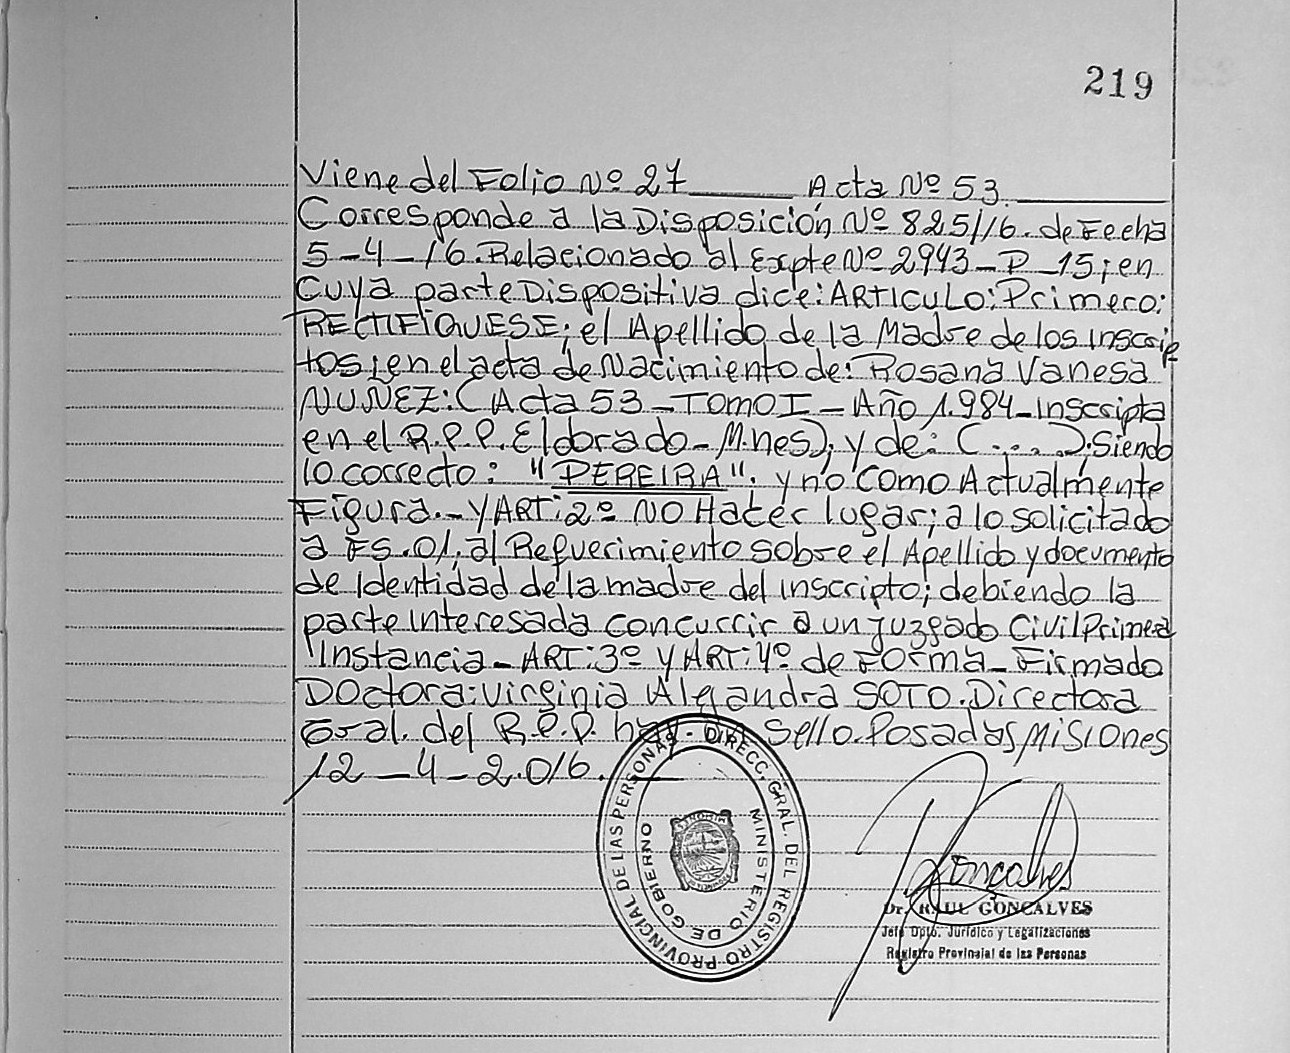 219
Viene del Folio Nº 27 Acta Nº 53
Corresponde a la Disposición Nº 825/16. de Fecha
5-4-16. Relacionado al Expte Nº 2943-P-15; en
Cuya parte Dispositiva dice: ARTICULO: Primero:
RECTIFIQUESE; el Apellido de la Madre de los Inscrip
tos; en el acta de Nacimiento de: Rosana Vanesa
NUÑEZ: (Acta 53 - TOMO I - Año 1.984 - Inscripta
en el R.P.P. Eldorado - M.nes); y de: (....): Siendo
lo correcto: "PEREIRA"; y no como Actualmente
Figura.- Y ART: 2º NO Hacer lugar; a lo solicitado
a FS.01; al Requerimiento sobre el Apellido y documento
de Identidad de la madre del inscripto; debiendo la
parte Interesada concurrir a un juzgado Civil Primera
Instancia - ART: 3º Y ART: 4º de Forma - Firmado
Doctora: Virginia Alejandra SOTO. Directora
Gral. del R.P.P. hay un Sello. Posadas Misiones
12-4-2.016.
DIRECC. GRAL. DEL REGISTRO PROVINCIAL DE LAS PERSONAS
MINISTERIO DE GOBIERNO
Goncalves
Dr. RAUL GONCALVES
Jefe Dpto. Jurídico y Legalizaciones
Registro Provincial de las Personas